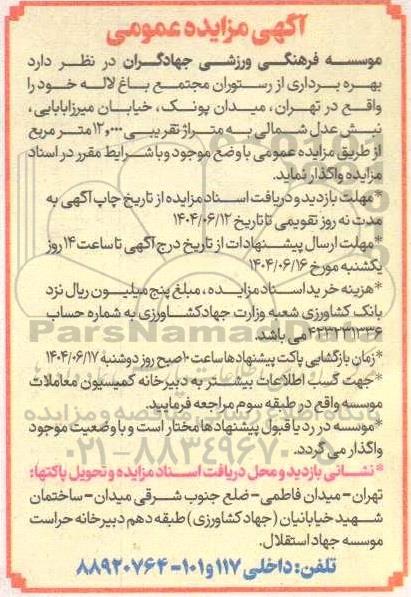 آگهی مزایده عمومی
موسسه فرهنگی ورزشی جهادگران در نظر دارد
بهره برداری از رستوران مجتمع باغ لاله خود را
واقع در تهران، میدان پونک، خیابان میرزابابایی،
نبش عدل شمالی به متراژ تقریبی ۱۲,۰۰۰ متر مربع
از طریق مزایده عمومی با وضع موجود و با شرایط مقرر در اسناد
مزایده واگذار نماید.
*مهلت بازدید و دریافت اسناد مزایده از تاریخ چاپ آگهی به
مدت نه روز تقویمی تا تاریخ ۱۴۰۴/۰۶/۱۲
*مهلت ارسال پیشنهادات از تاریخ درج آگهی تا ساعت ۱۴ روز
یکشنبه مورخ ۱۴۰۴/۰۶/۱۶
*هزینه خرید اسناد مزایده، مبلغ پنج میلیون ریال نزد
بانک کشاورزی شعبه وزارت جهاد کشاورزی به شماره حساب
۴۲۳۲۳۱۳۳۶ می باشد.
*زمان بازگشایی پاکت پیشنهادها ساعت ۱۰ صبح روز دوشنبه ۱۴۰۴/۰۶/۱۷
*جهت کسب اطلاعات بیشتر به دبیرخانه کمیسیون معاملات
موسسه واقع در طبقه سوم مراجعه فرمایید.
*موسسه در رد یا قبول پیشنهادها مختار است و با وضعیت موجود
واگذار می گردد.
*نشانی بازدید و محل دریافت اسناد مزایده و تحویل پاکتها:
تهران- میدان فاطمی- ضلع جنوب شرقی میدان- ساختمان
شهید خیابانیان (جهاد کشاورزی) طبقه دهم دبیرخانه حراست
موسسه جهاد استقلال.
تلفن: داخلی ۱۱۷ و ۱۰۱- ۸۸۹۲۰۷۶۴
ParsNamadData
۰۲۱-۸۸۳۴۹۶۷۰